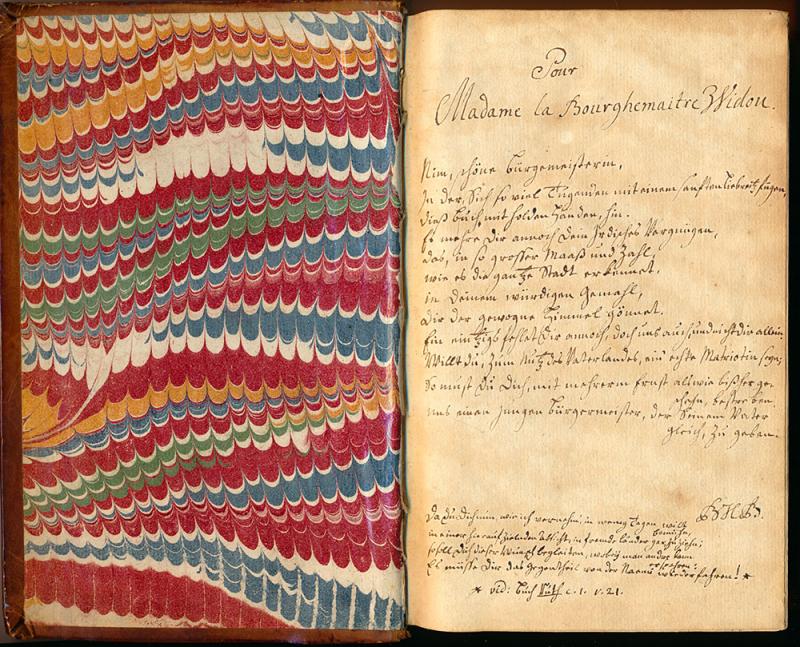 Pour
Madame la Bourghemaitre Widou.
Nim, schöne Bürgemeisterin,
In der, Sich so viel Tugenden mit einem sanften Liebreitz fügen,
dieß Buch mit holden Händen, hin.
Es mehre Dir annoch dein Irdisches Vergnügen,
das, in so grosser Maaß und Zahl,
wie es die gantze Stadt erkennet,
in Deinem würdigen Gemahl,
Dir der gewogne Himmel gönnet.
Ein eintzigs fehlet Dir annoch, doch uns auch, und nicht dir allein
Willt du, zum Nutz des Vaterlandes, ein echte Matriotin seyn;
So must Du Dich, mit mehrerm Ernst als wie bißher geschehn, bestreben
uns einen jungen Bürgermeister, der Seinem Vater
gleich, zu geben.
BHB.
Da Du Dich nun, wie ich vernehm, in wenig Tagen willt bemühen,
in einer Absicht, in fremde Länder zu ziehn;
soll Dich dieser Wunsch begleiten, wobey man
Es müsse Dir das Gegentheil von der Naemi wiederfahren! *
* vid: Buch Ruth c. 1. v. 21.